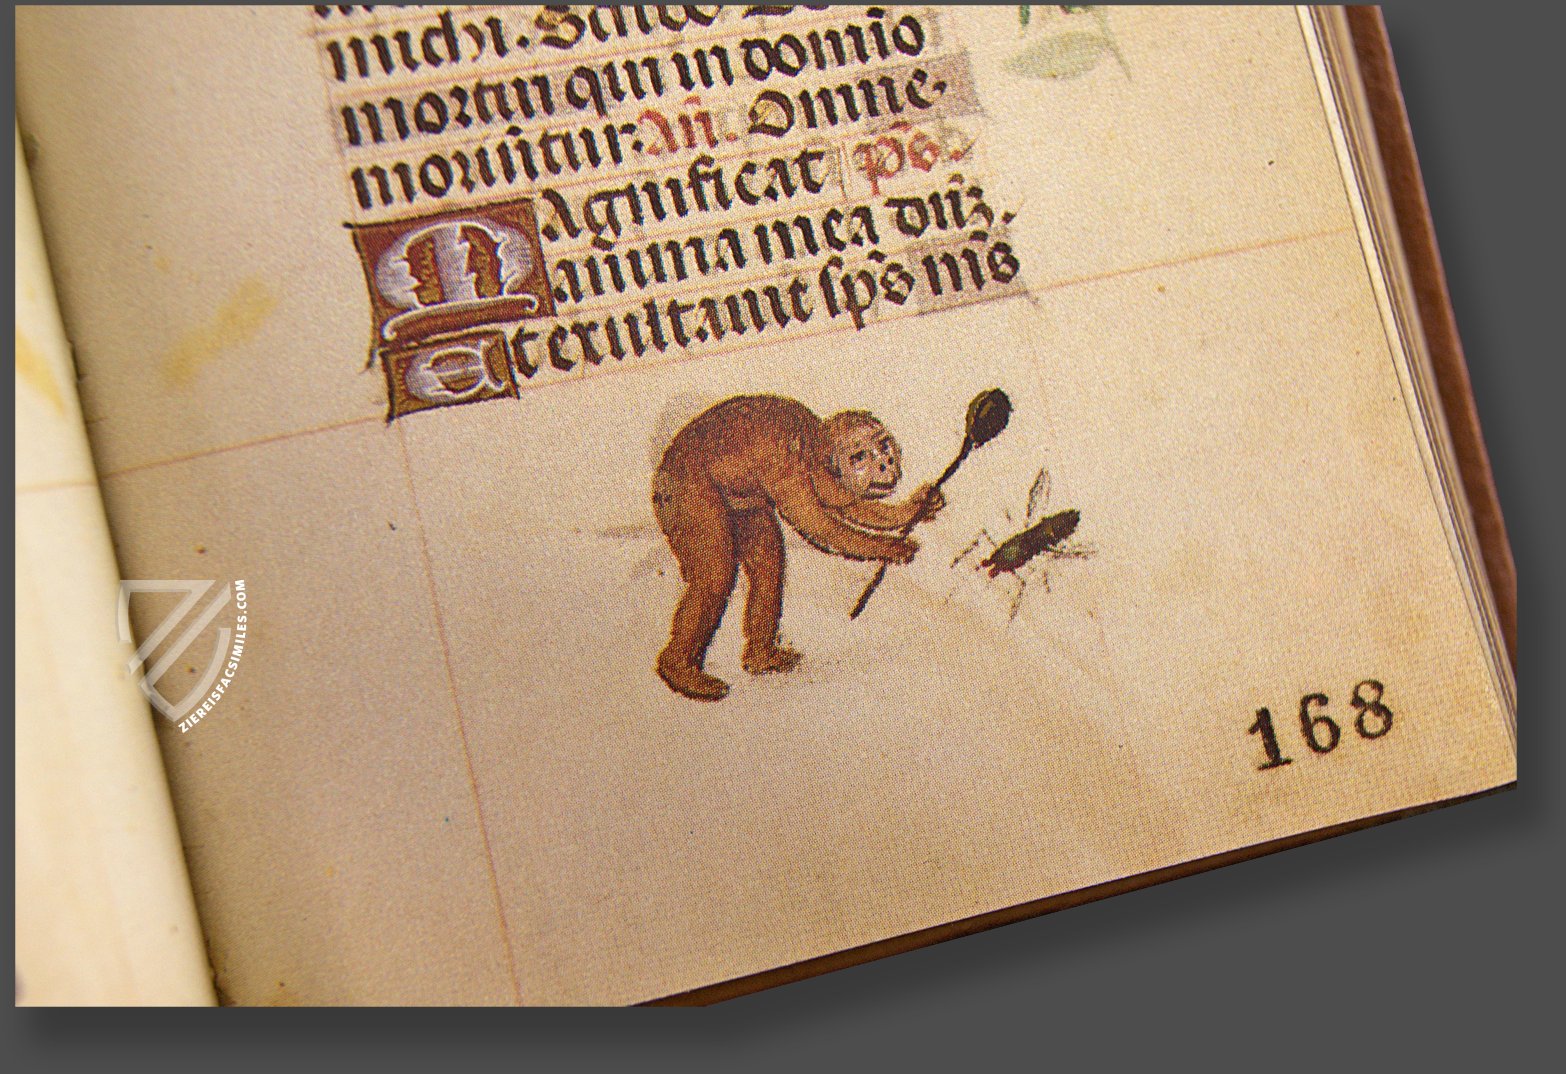 michi.
mortui qui in domīo
moriūtur: Añ. Omne.
Magnificat p̄s.
anima mea dn̄z.
Et exultauit sp̄s m̄s
168
ZIEREISFACSIMILES.COM